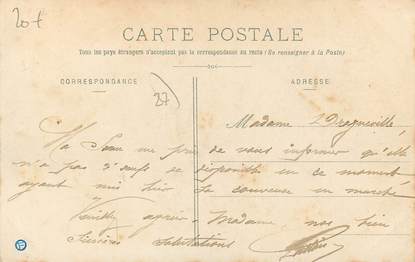 20 f
CARTE POSTALE
Tous les pays étrangers n'acceptent pas la correspondance au recto (Se renseigner à la Poste)
CORRESPONDANCE
ADRESSE
27)
Madame
Ma Sœur me prie de vous informer qu'elle
n'a pas d'œufs de disponible en ce moment
ayant mis hier la couveuse en marche
Veuillez agréer Madame nos bien
Sincères Salutations